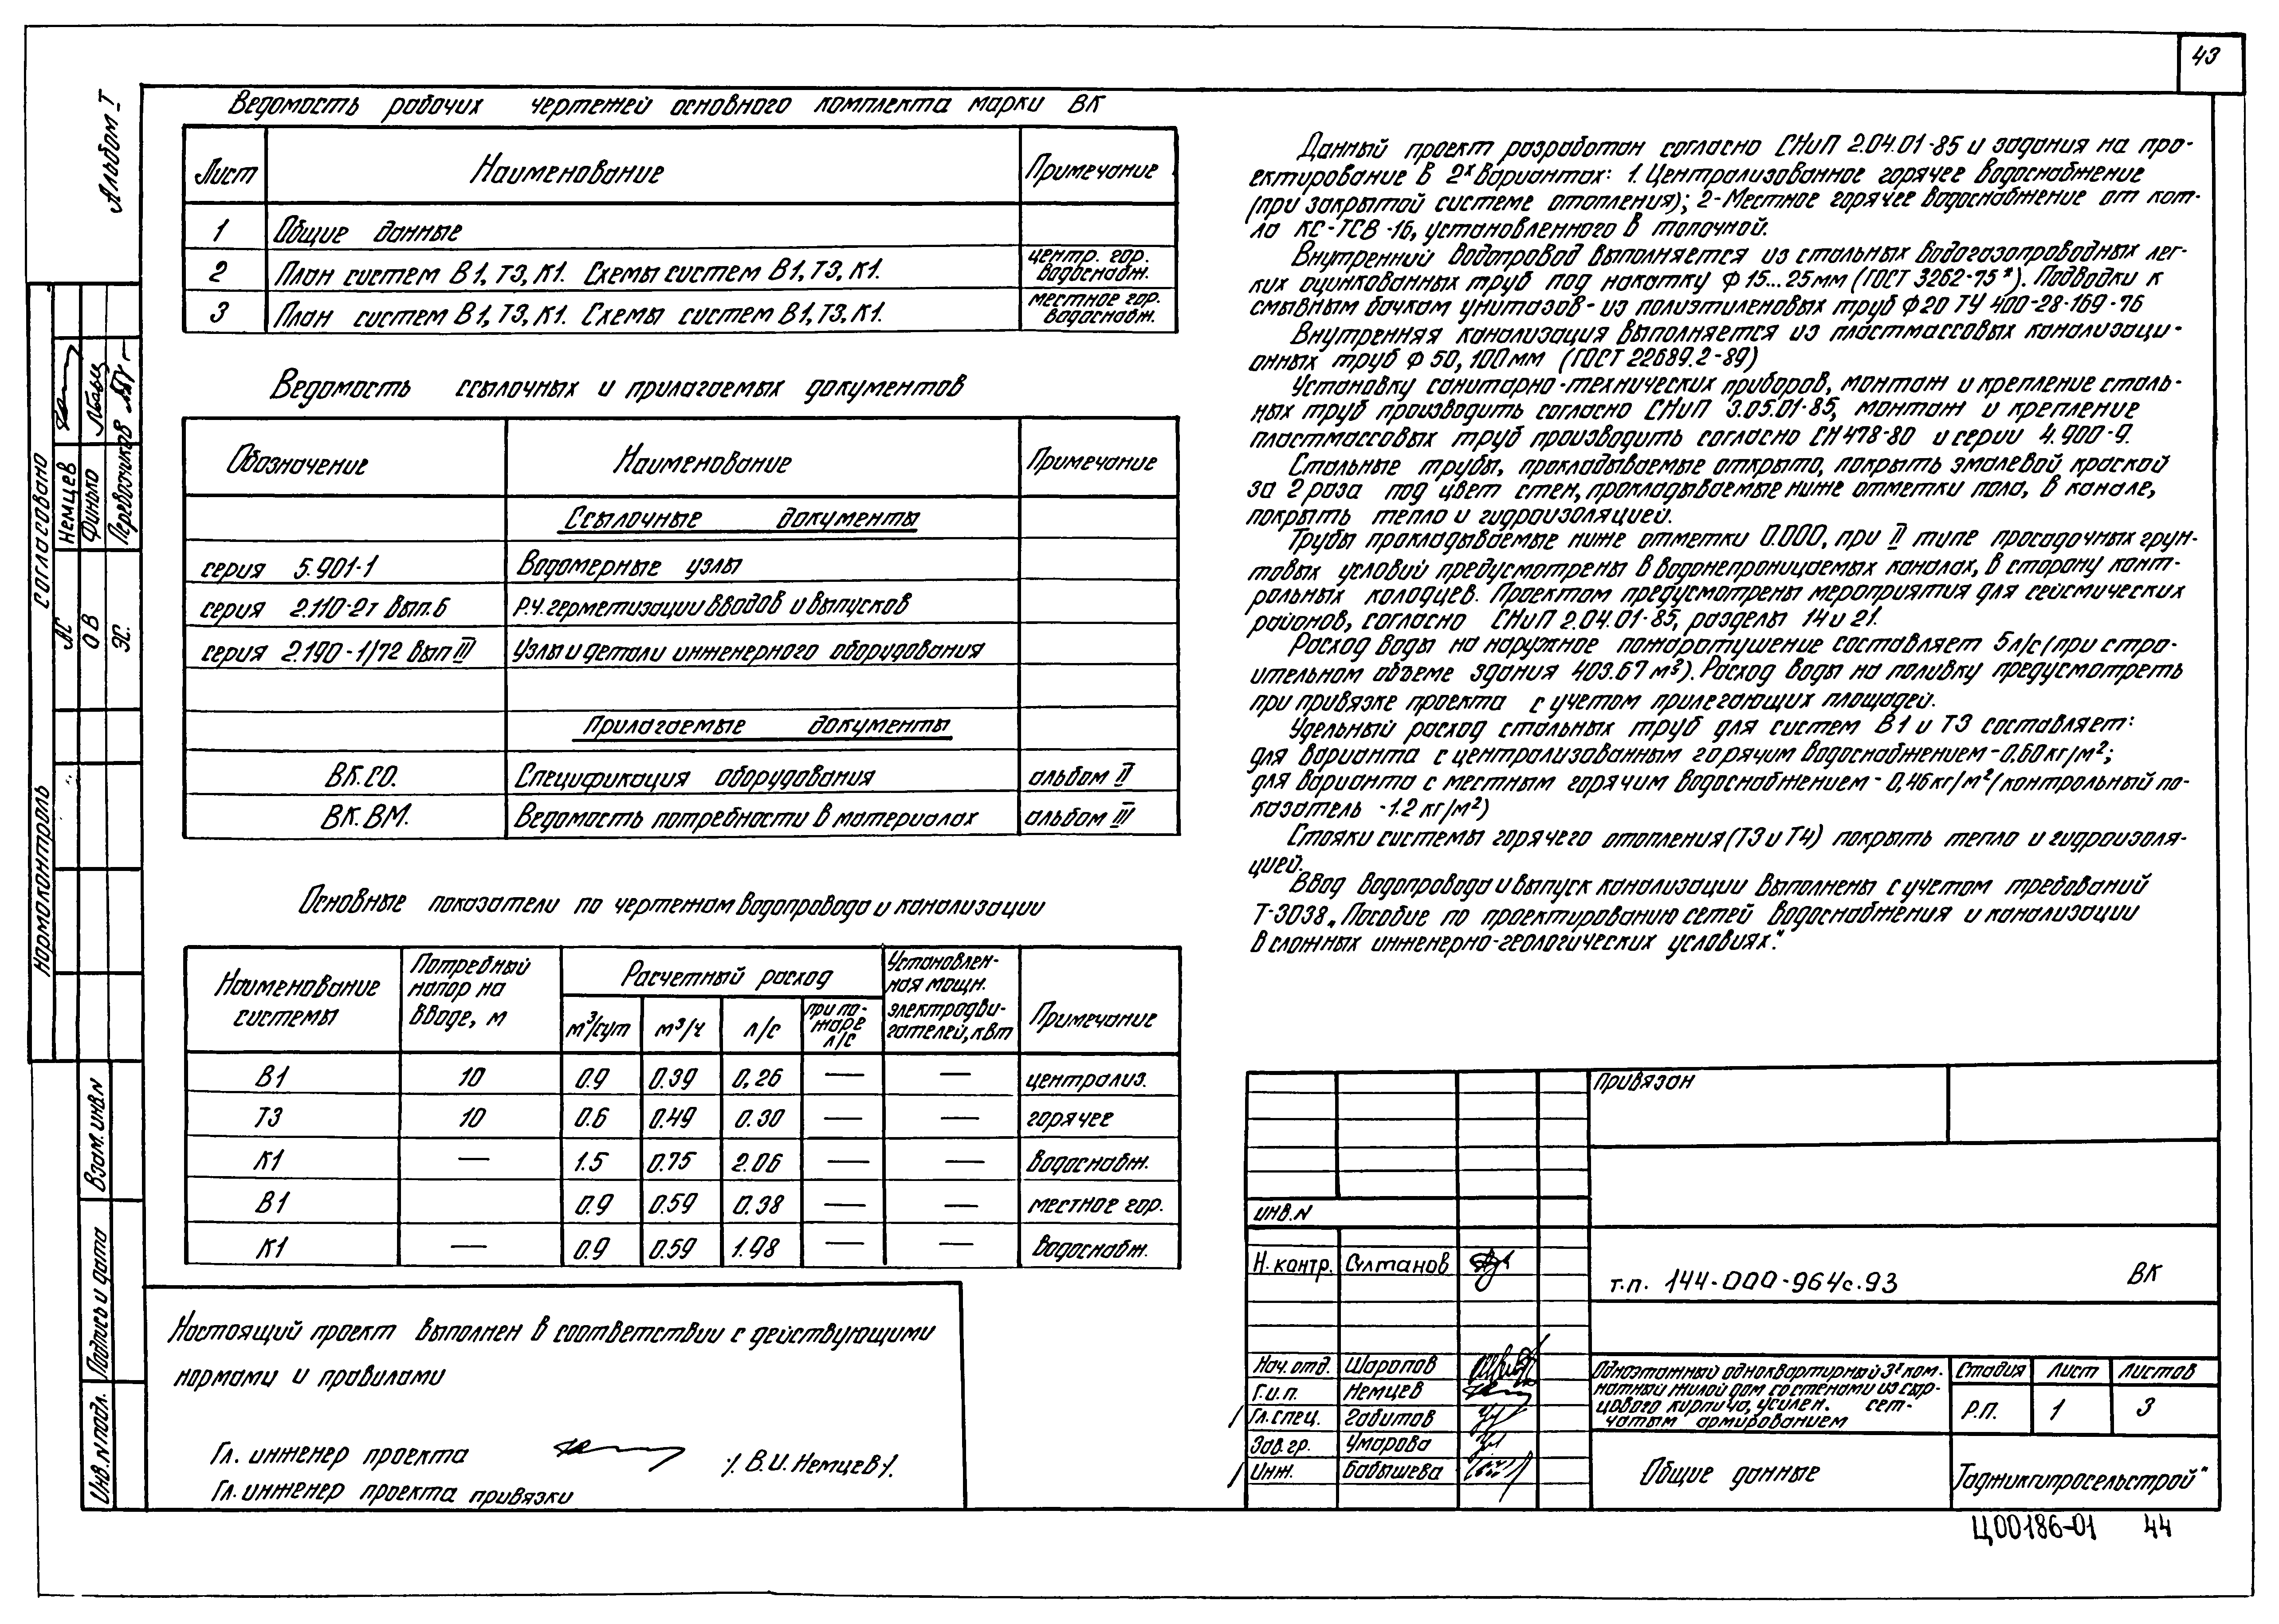 43
Альбом I
Ведомость рабочих чертежей основного комплекта марки ВК
Лист Наименование Примечание
1 Общие данные
2 План систем В1, Т3, К1. Схемы систем В1, Т3, К1. центр. гор. водоснабж.
3 План систем В1, Т3, К1. Схемы систем В1, Т3, К1. местное гор. водоснабж.
Ведомость ссылочных и прилагаемых документов
Обозначение Наименование Примечание
Ссылочные документы
серия 5.901-1 Водомерные узлы
серия 2.110-2т вып.6 Р.ч. герметизации вводов и выпусков
серия 2.190-1/72 вып III Узлы и детали инженерного оборудования
Прилагаемые документы
ВК.СО. Спецификация оборудования альбом II
ВК.ВМ. Ведомость потребности в материалах альбом III
Основные показатели по чертежам водопровода и канализации
Наименование системы Потребный напор на вводе, м Расчетный расход Установлен- ная мощн. электродви- гателей, квт Примечание
м³/сут м³/ч л/с при по- жаре л/с
В1 10 0.9 0.39 0,26 — — централиз.
Т3 10 0.6 0.49 0.30 — — горячее
К1 — 1.5 0.75 2.06 — — водоснабж.
В1 0.9 0.59 0.38 — — местное гор.
К1 — 0.9 0.59 1.98 — — водоснабж.
Настоящий проект выполнен в соответствии с действующими
нормами и правилами
Гл. инженер проекта /. В.И. Немцев /.
Гл. инженер проекта привязки
Данный проект разработан согласно СНиП 2.04.01-85 и задания на про-
ектирование в 2х вариантах: 1. Централизованное горячее водоснабжение
(при закрытой системе отопления); 2-Местное горячее водоснабжение от кот-
ла КС-ТСВ-16, установленного в топочной.
Внутренний водопровод выполняется из стальных водогазопроводных лег-
ких оцинкованных труб под накатку Ф 15...25мм (ГОСТ 3262-75*). Подводки к
смывным бачкам унитазов- из полиэтиленовых труб Ф20 ТУ 400-28-169-76
Внутренняя канализация выполняется из пластмассовых канализаци-
онных труб Ф 50, 100мм (ГОСТ 22689.2-89)
Установку санитарно-технических приборов, монтаж и крепление сталь-
ных труб производить согласно СНиП 3.05.01-85, монтаж и крепление
пластмассовых труб производить согласно СН 478-80 и серии 4.900-9.
Стальные трубы, прокладываемые открыто, покрыть эмалевой краской
за 2 раза под цвет стен, прокладываемые ниже отметки пола, в канале,
покрыть тепло и гидроизоляцией.
Трубы прокладываемые ниже отметки 0.000, при II типе просадочных грун-
товых условий предусмотрены в водонепроницаемых каналах, в сторону конт-
рольных колодцев. Проектом предусмотрены мероприятия для сейсмических
районов, согласно СНиП 2.04.01-85, разделы 14 и 21.
Расход воды на наружное пожаротушение составляет 5л/с (при стро-
ительном объеме здания 403.67 м³). Расход воды на поливку предусмотреть
при привязке проекта с учетом прилегающих площадей.
Удельный расход стальных труб для систем В1 и Т3 составляет:
для варианта с централизованным горячим водоснабжением-0.60кг/м²;
для варианта с местным горячим водоснабжением- 0,46кг/м² (контрольный по-
казатель -1.2 кг/м²)
Стояки системы горячего отопления (Т3 и Т4) покрыть тепло и гидроизоля-
цией.
Ввод водопровода и выпуск канализации выполнены с учетом требований
Т-3038 „Пособие по проектированию сетей водоснабжения и канализации
в сложных инженерно-геологических условиях".
Привязан
инв.N
т.п. 144-000-964с.93 ВК
Н. контр. Султанов
Нач. отд. Шаропов
Г.и.п. Немцев
Гл. спец. Габитов
Зав. гр. Умарова
Инж. Бабышева
Одноэтажный одноквартирный 3х ком-
натный жилой дом со стенами из сыр-
цового кирпича, усилен. сет-
чатым армированием
Стадия Лист Листов
Р.П. 1 3
Общие данные
Таджикгипросельстрой"
Ц00186-01 44
Согласовано
АС Немцев
ОВ Финько
ЭС. Перевозников
Нормоконтроль
Взам. инв.N
Подпись и дата
Инв. N подл.